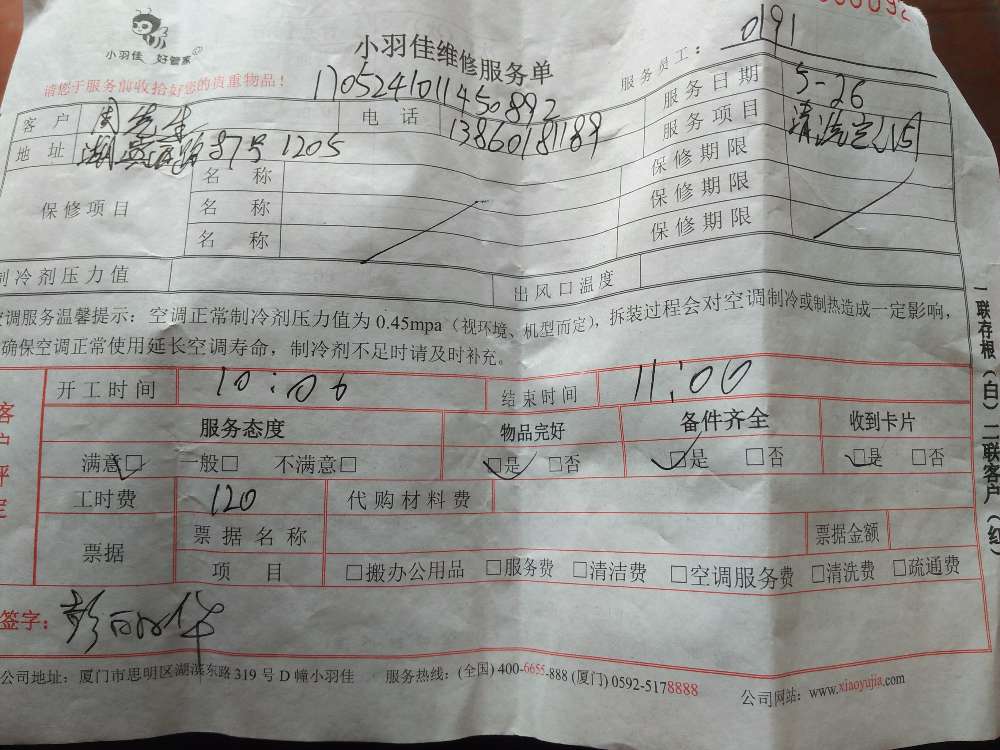 小羽佳 好管家
小羽佳维修服务单
服务员工：0191
请您于服务前收拾好您的贵重物品！
1705241011450892
服务日期 5-26
客户 周先生 电话 13860181189
服务项目 清洗空调
地址 87号1205
保修项目 名称 保修期限
名称 保修期限
名称 保修期限
制冷剂压力值 出风口温度
空调服务温馨提示：空调正常制冷剂压力值为0.45mpa（视环境、机型而定），拆装过程会对空调制冷或制热造成一定影响，
确保空调正常使用延长空调寿命，制冷剂不足时请及时补充。
客户评定
开工时间 10:06 结束时间 11:00
服务态度 物品完好 备件齐全 收到卡片
满意☑ 一般□ 不满意□ ☑是 □否 ☑是 □否 ☑是 □否
工时费 120 代购材料费
票据 票据名称 票据金额
项目 □搬办公用品 □服务费 □清洁费 □空调服务费 □清洗费 □疏通费
签字：
公司地址：厦门市思明区湖滨东路319号D幢小羽佳 服务热线：(全国) 400-6655-888 (厦门) 0592-5178888 公司网站：www.xiaoyujia.com
一联存根（白）二联客户（红）